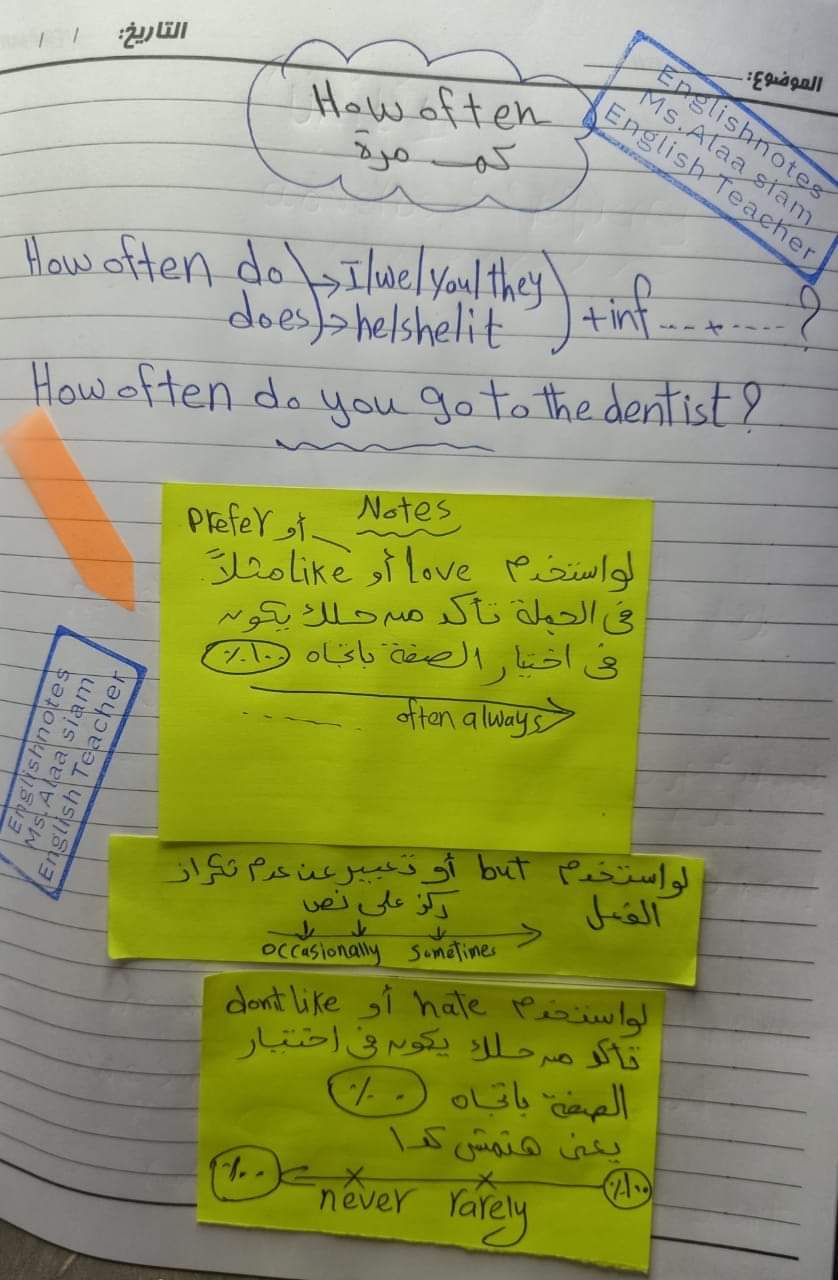 التاريخ: / /
الموضوع:
Englishnotes
Ms. Alaa siam
English Teacher
How often
كم مرة
How often do → I/we/you/they
does → he/she/it
+inf .... + ..... ?
How often do you go to the dentist?
Notes
Prefer أو
لو استخدم love أو like مثلاً
فى الجملة تأكد من حلك يكون
فى اختيار الصفة باتجاه ١٠٠٪
often always
لو استخدم but أو تعبير عن عدم تكرار
الفعل
ركز على نص
occasionally sometimes
لو استخدم hate أو dont like
تأكد من حلك يكون فى اختيار
الصفة باتجاه ٠٠٪
يعنى هتمش كدا
٠٠٪ ١٠٠٪
never rarely
Englishnotes
Ms. Alaa siam
English Teacher